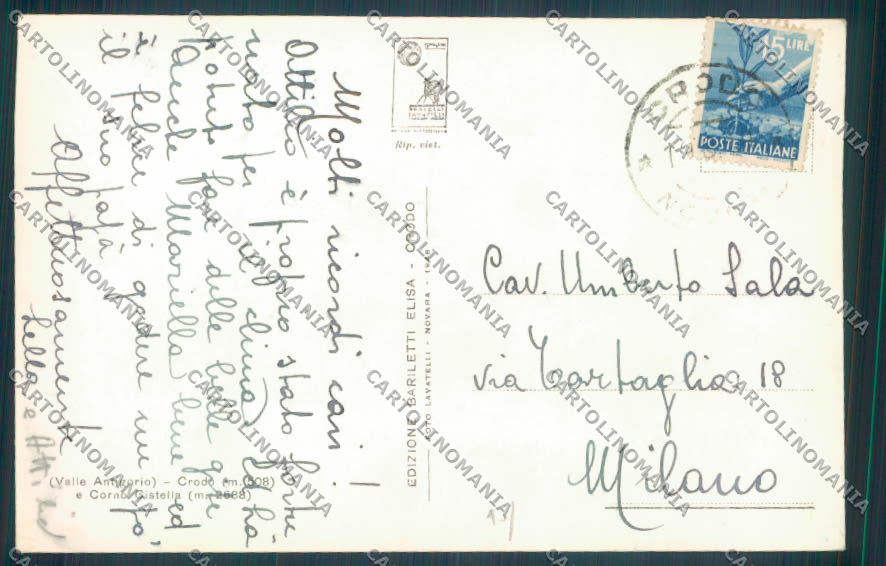 Molti ricordi cari!
Attilio è proprio stato fortu
nato per il clima, ha
potuto fare delle belle gite
Anche Mariella bene ed
è felice di godere un po'
il suo papà
Affettuosamente
Lella e Attilio
(Valle Antigorio) - Crodo (m. 508)
e Corno Cistella (m. 2688)
Rip. viet.
EDIZIONE BARILETTI ELISA - CRODO
FOTO LAVATELLI - NOVARA
15 LIRE
POSTE ITALIANE
CRODO
Cav. Umberto Sala
via Tartaglia 18
Milano
CARTOLINOMANIA